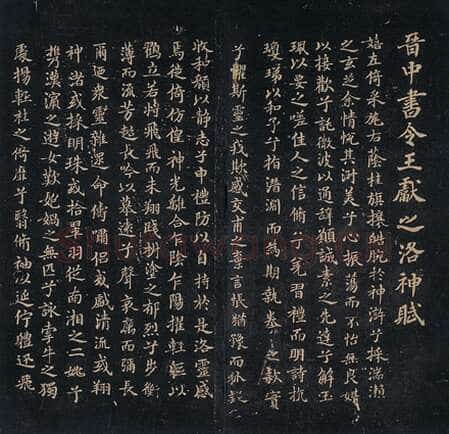 晉中書令王獻之洛神賦
嬉左倚采旄右蔭桂旗攘皓腕於神滸兮採湍瀨
之玄芝余情悅其淑美兮心振蕩而不怡無良媒
以接歡兮託微波以通辭願誠素之先達兮解玉
珮以要之嗟佳人之信脩兮羌習禮而明詩抗
瓊珶以和予兮指潛淵而為期執拳〻之款實
兮懼斯靈之我欺感交甫之棄言悵猶豫而狐疑
收和顏以靜志兮申禮防以自持於是洛靈感
焉徙倚彷徨神光離合乍陰乍陽擢輕軀以
鶴立若將飛而未翔踐椒塗之郁烈兮步衡
薄而流芳超長吟以慕遠兮聲哀厲而彌長
爾迺衆靈雜遝命儔嘯侶或戲清流或翔
神渚或採明珠或拾翠羽從南湘之二姚兮
攜漢濱之遊女歎炮媧之無匹兮詠牽牛之獨
處揚輕袿之倚靡兮翳脩袖以延佇體迅飛